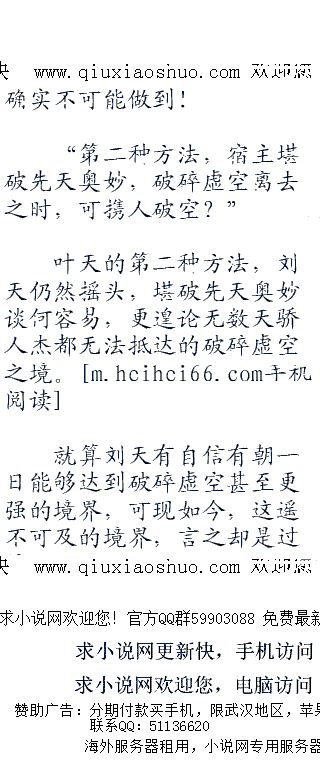 快 www.qiuxiaoshuo.com 欢迎您
确实不可能做到！
“第二种方法，宿主堪
破先天奥妙，破碎虚空离去
之时，可携人破空？”
叶天的第二种方法，刘
天仍然摇头，堪破先天奥妙
谈何容易，更遑论无数天骄
人杰都无法抵达的破碎虚空
之境。[m.hcihci66.com手机
阅读]
就算刘天有自信有朝一
日能够达到破碎虚空甚至更
强的境界，可现如今，这遥
不可及的境界，言之却是过
快 www.qiuxiaoshuo.com 欢迎您
求小说网欢迎您！官方QQ群59903088 免费最新
求小说网更新快，手机访问
求小说网欢迎您，电脑访问
赞助广告：分期付款买手机，限武汉地区，苹果
联系QQ：51136620
海外服务器租用，小说网专用服务器